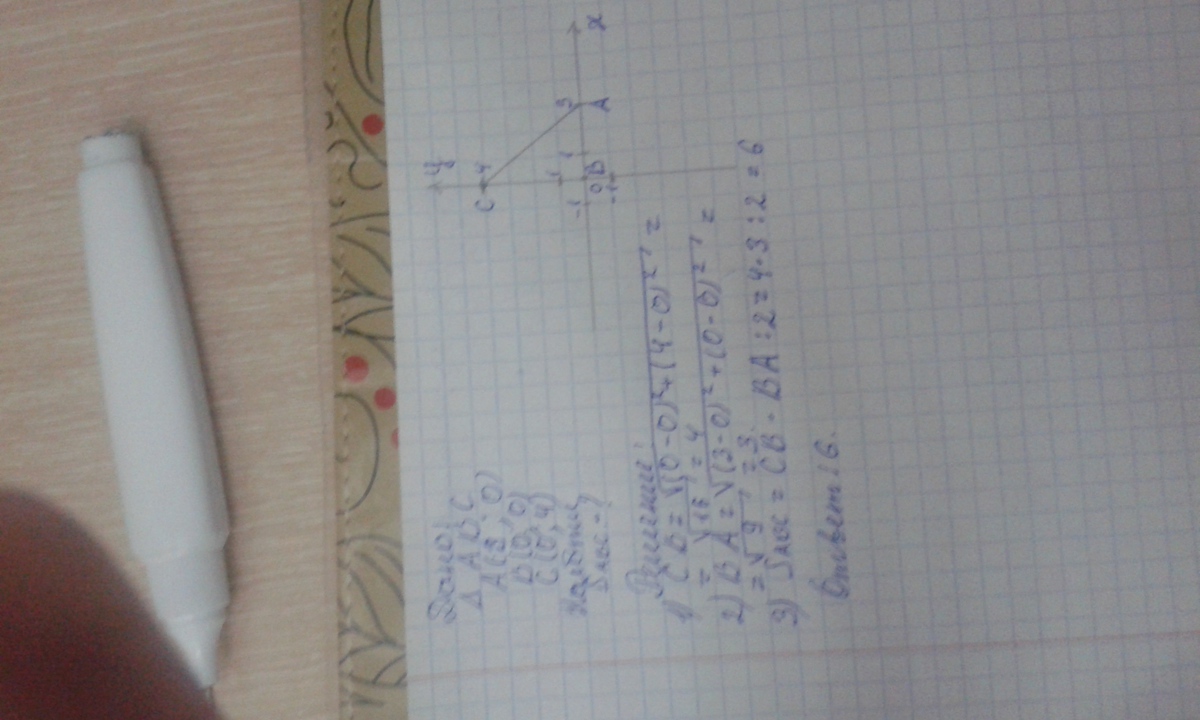 Дано:
Δ ABC
A(3; 0)
B(0; 0)
C(0; 4)
Найти
S ABC - ?
y
C 4
1
-1 0 B 1 3 x
-1 A
Решение:
1) CB = √(0-0)²+(4-0)² =
= √16 = 4
2) BA = √(3-0)²+(0-0)² =
= √9 = 3.
3) S ABC = CB · BA : 2 = 4·3 : 2 = 6
Ответ: 6.